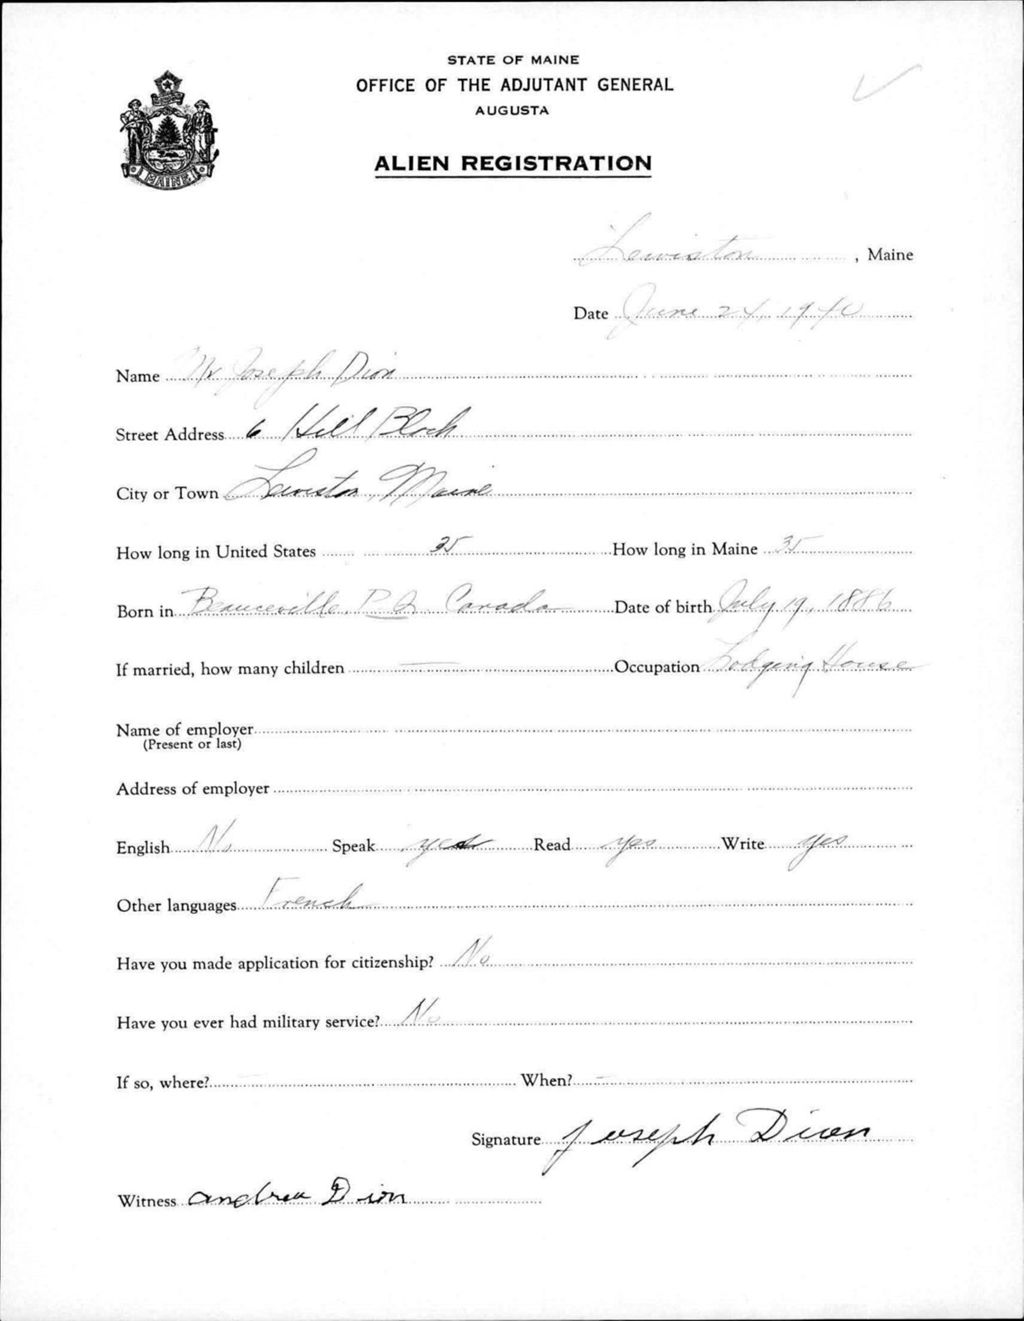 STATE OF MAINE
OFFICE OF THE ADJUTANT GENERAL
AUGUSTA
MAINE
ALIEN REGISTRATION
Lewiston, Maine
Date June 24, 1940
Name Mr Joseph Dion
Street Address 6 Hill Block
City or Town Lewiston, Maine
How long in United States 35 How long in Maine 35
Born in Beauceville, P.Q. Canada Date of birth July 19, 1886
If married, how many children — Occupation Lodging House
Name of employer
(Present or last)
Address of employer
English No Speak yes Read yes Write yes
Other languages French
Have you made application for citizenship? No
Have you ever had military service? No
If so, where? — When? —
Signature Joseph Dion
Witness Andrea Dion